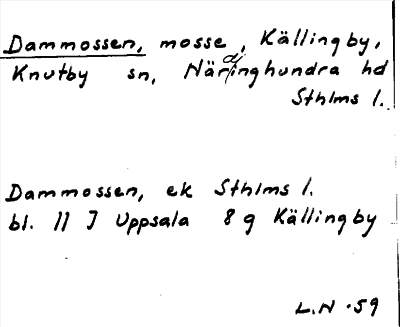 Dammossen, mosse, Källingby,
Knutby sn, Närdinghundra hd
Sthlms l.
Dammossen, ek Sthlms l.
bl. 11 I Uppsala 8 g Källingby
L.N -59